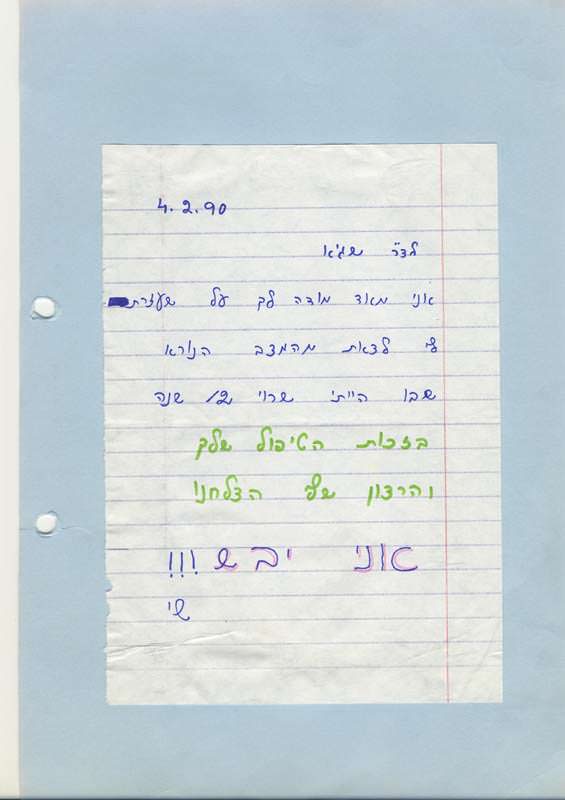 4.2.90
לד"ר שגיא
אני מאוד מודה לך על שעזרת
לי לצאת מהמצב הנורא
שבו הייתי שרוי 12 שנה
בזכות הטיפול שלך
והרצון שלי הצלחנו
אני יבש!!!
שי